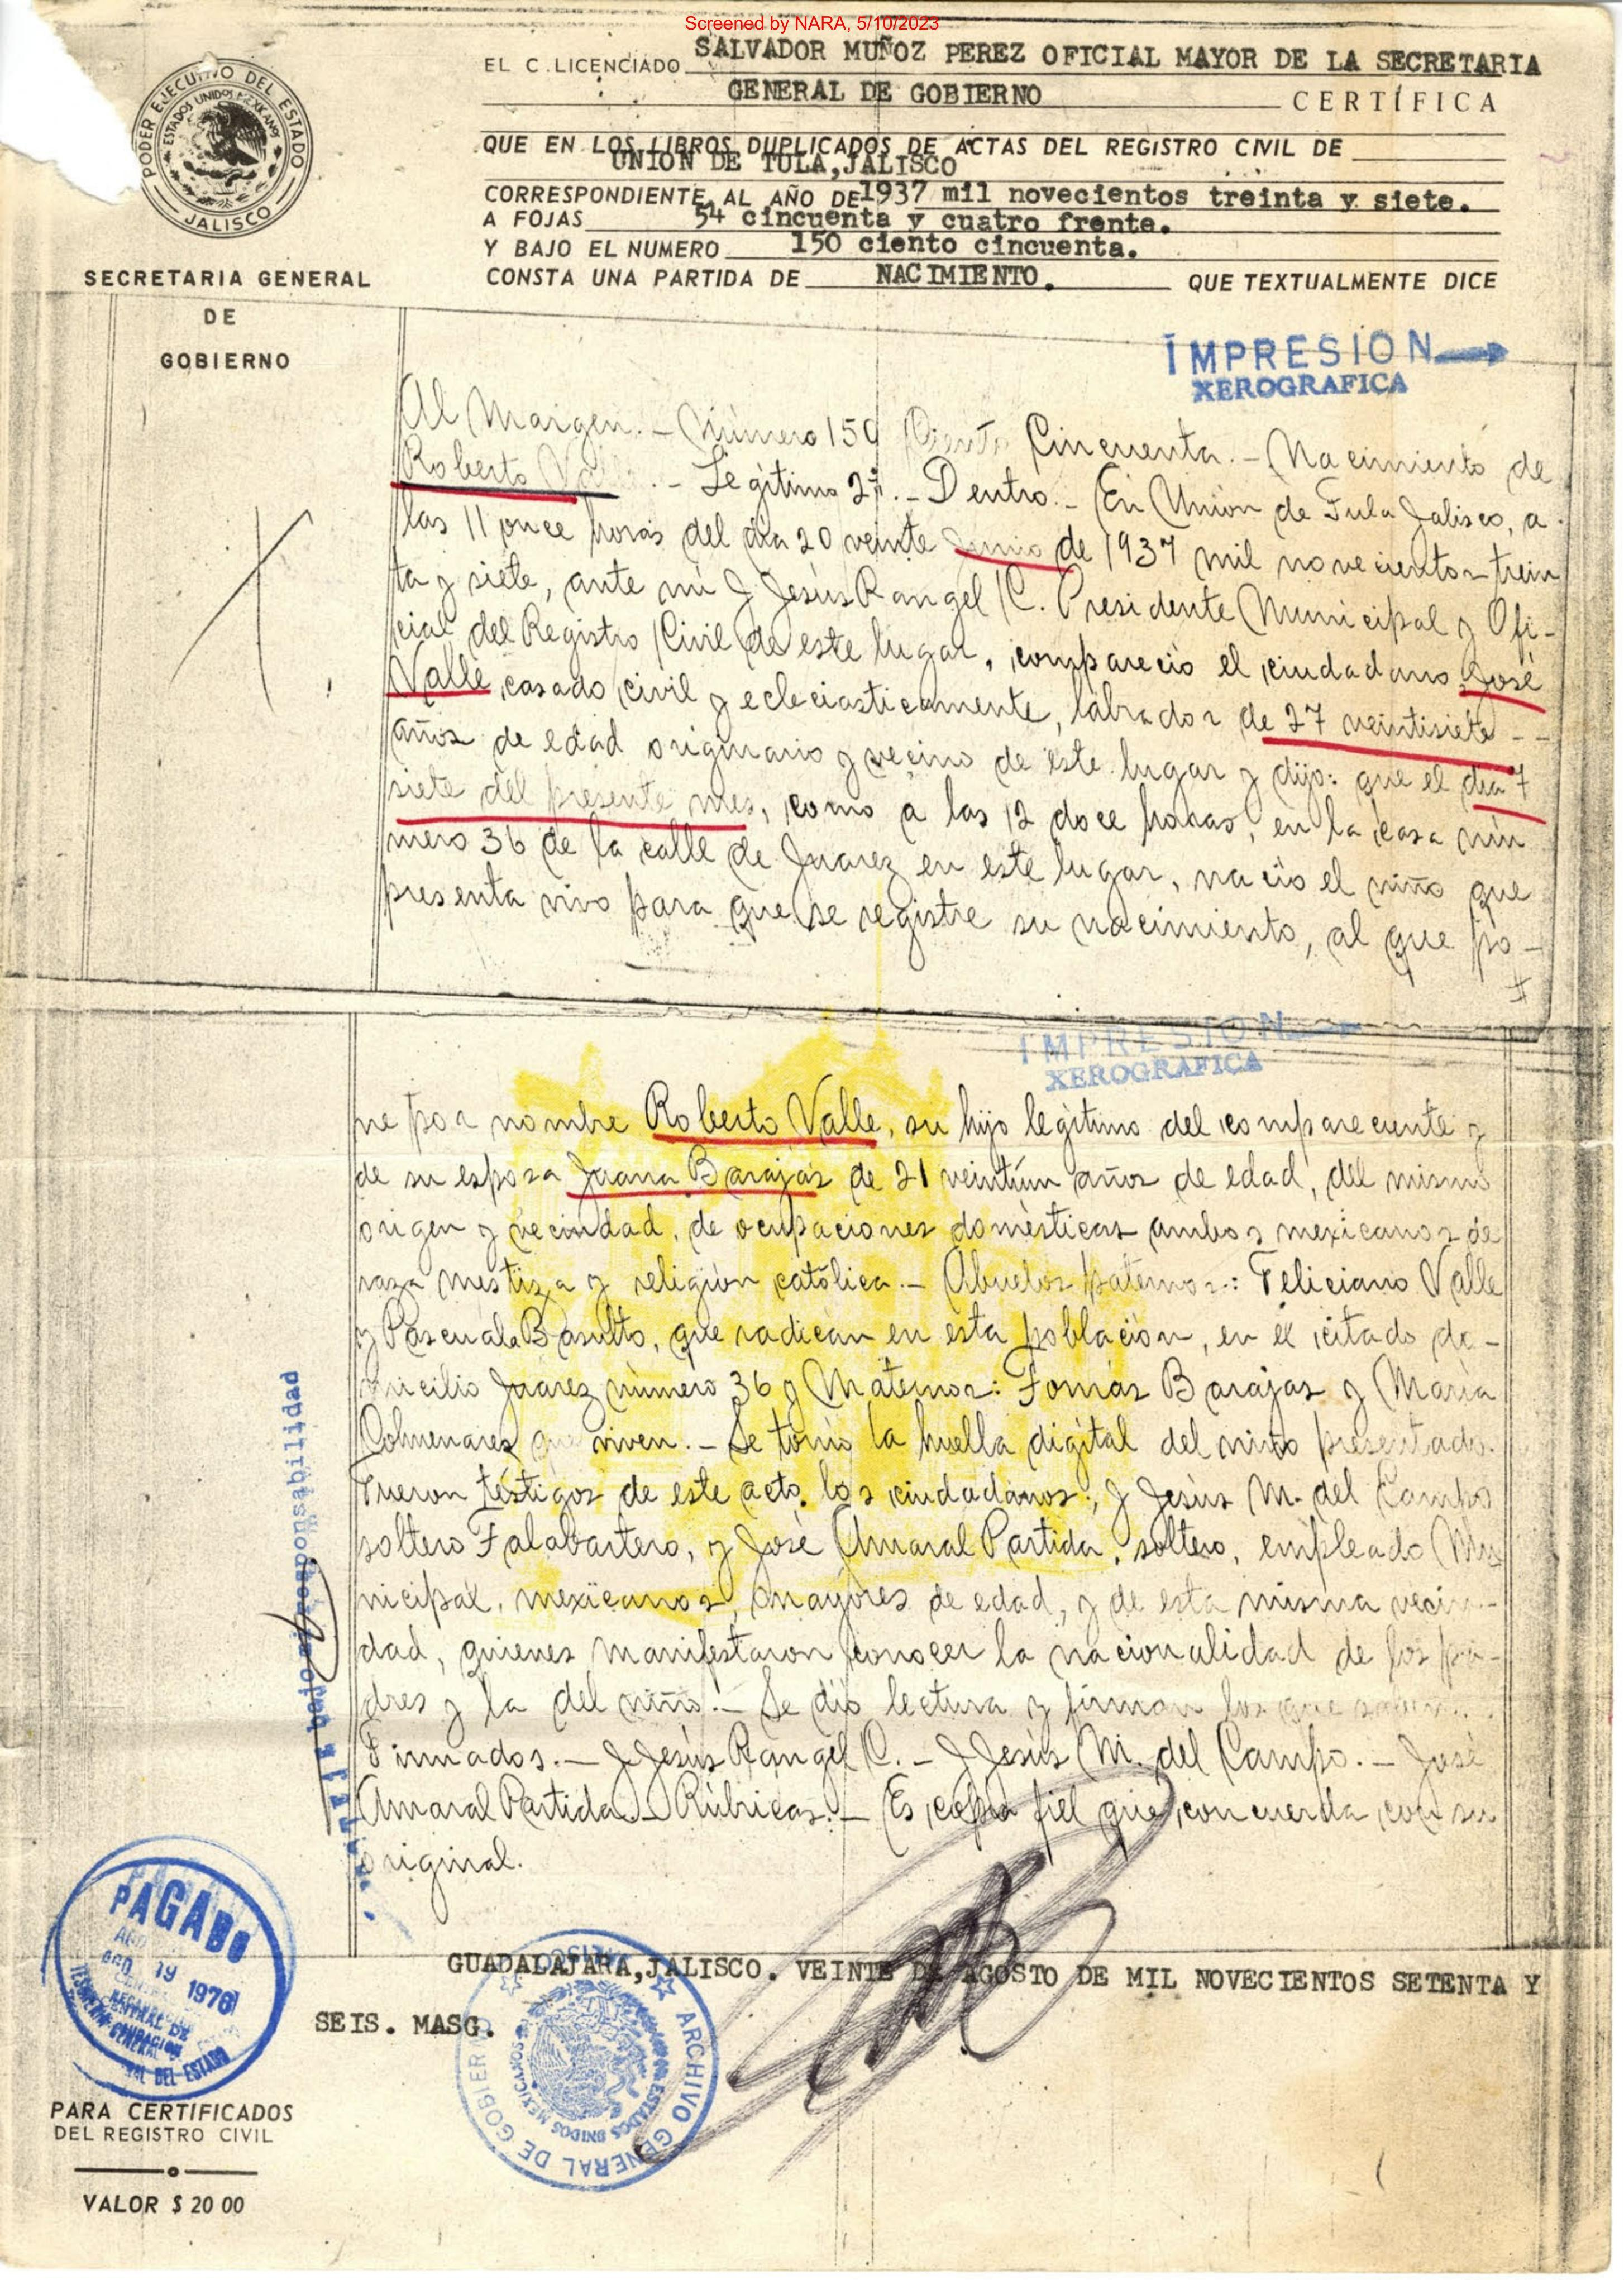 Screened by NARA, 5/10/2023
PODER EJECUTIVO DEL ESTADO
ESTADOS UNIDOS MEXICANOS
JALISCO
EL C. LICENCIADO SALVADOR MUÑOZ PEREZ OFICIAL MAYOR DE LA SECRETARIA
GENERAL DE GOBIERNO CERTIFICA
QUE EN LOS LIBROS DUPLICADOS DE ACTAS DEL REGISTRO CIVIL DE
UNION DE TULA, JALISCO
CORRESPONDIENTE AL AÑO DE 1937 mil novecientos treinta y siete.
A FOJAS 54 cincuenta y cuatro frente.
Y BAJO EL NUMERO 150 ciento cincuenta.
CONSTA UNA PARTIDA DE NACIMIENTO. QUE TEXTUALMENTE DICE
SECRETARIA GENERAL
DE
GOBIERNO
IMPRESION
XEROGRAFICA
Al Margen.- Número 150 Ciento Cincuenta.- Nacimiento de
Roberto Valle.- Legítimo 2º.- Dentro.- En Unión de Tula Jalisco, a
las 11 once horas del día 20 veinte Junio de 1937 mil novecientos trein
ta y siete, ante mi J Jesús Rangel C. Presidente Municipal y Ofi-
cial del Registro Civil de este lugar, compareció el ciudadano José
Valle casado civil y ecleciasticamente, labrador de 27 veintisiete --
años de edad originario y vecino de este lugar y dijo: que el dia 7
siete del presente mes, como a las 12 doce horas, en la casa nún
mero 36 de la calle de Juarez en este lugar, nació el niño que
presenta vivo para que se registre su nacimiento, al que po-
IMPRESION
XEROGRAFICA
ne por nombre Roberto Valle, su hijo legítimo del compareciente y
de su esposa Juana Barajas de 21 veintiún años de edad, del mismo
origen y vecindad, de ocupaciones domésticas ambos mexicanos de
raza mestiza y religión católica.- Abuelos paternos: Feliciano Valle
y Pascuala Basulto, que radican en esta población, en el citado do-
micilio Juárez número 36 y Maternos: Tomás Barajas y María
Colmenares que viven.- Se tomó la huella digital del niño presentado.
Fueron testigos de este acto, los ciudadanos, J Jesús M. del Campo
soltero Talabartero, y José Amaral Partida, soltero, empleado Mu
nicipal, mexicanos, mayores de edad, y de esta misma vecin-
dad, quienes manifestaron conocer la nacionalidad de los pa-
dres y la del niño.- Se dió lectura y firman los que saben.
Firmados.- J Jesús Rangel C.- J Jesús M. del Campo.- José
Amaral Partida.- Rúbricas.- Es copia fiel que concuerda con su
original.
bajo responsabilidad
PAGADO
AGO 19 1976
DEL ESTADO
GUADALAJARA, JALISCO. VEINTE DE AGOSTO DE MIL NOVECIENTOS SETENTA Y
SEIS. MASG.
ARCHIVO GENERAL DE GOBIERNO
JALISCO
ESTADOS UNIDOS MEXICANOS
PARA CERTIFICADOS
DEL REGISTRO CIVIL
VALOR $ 20 00